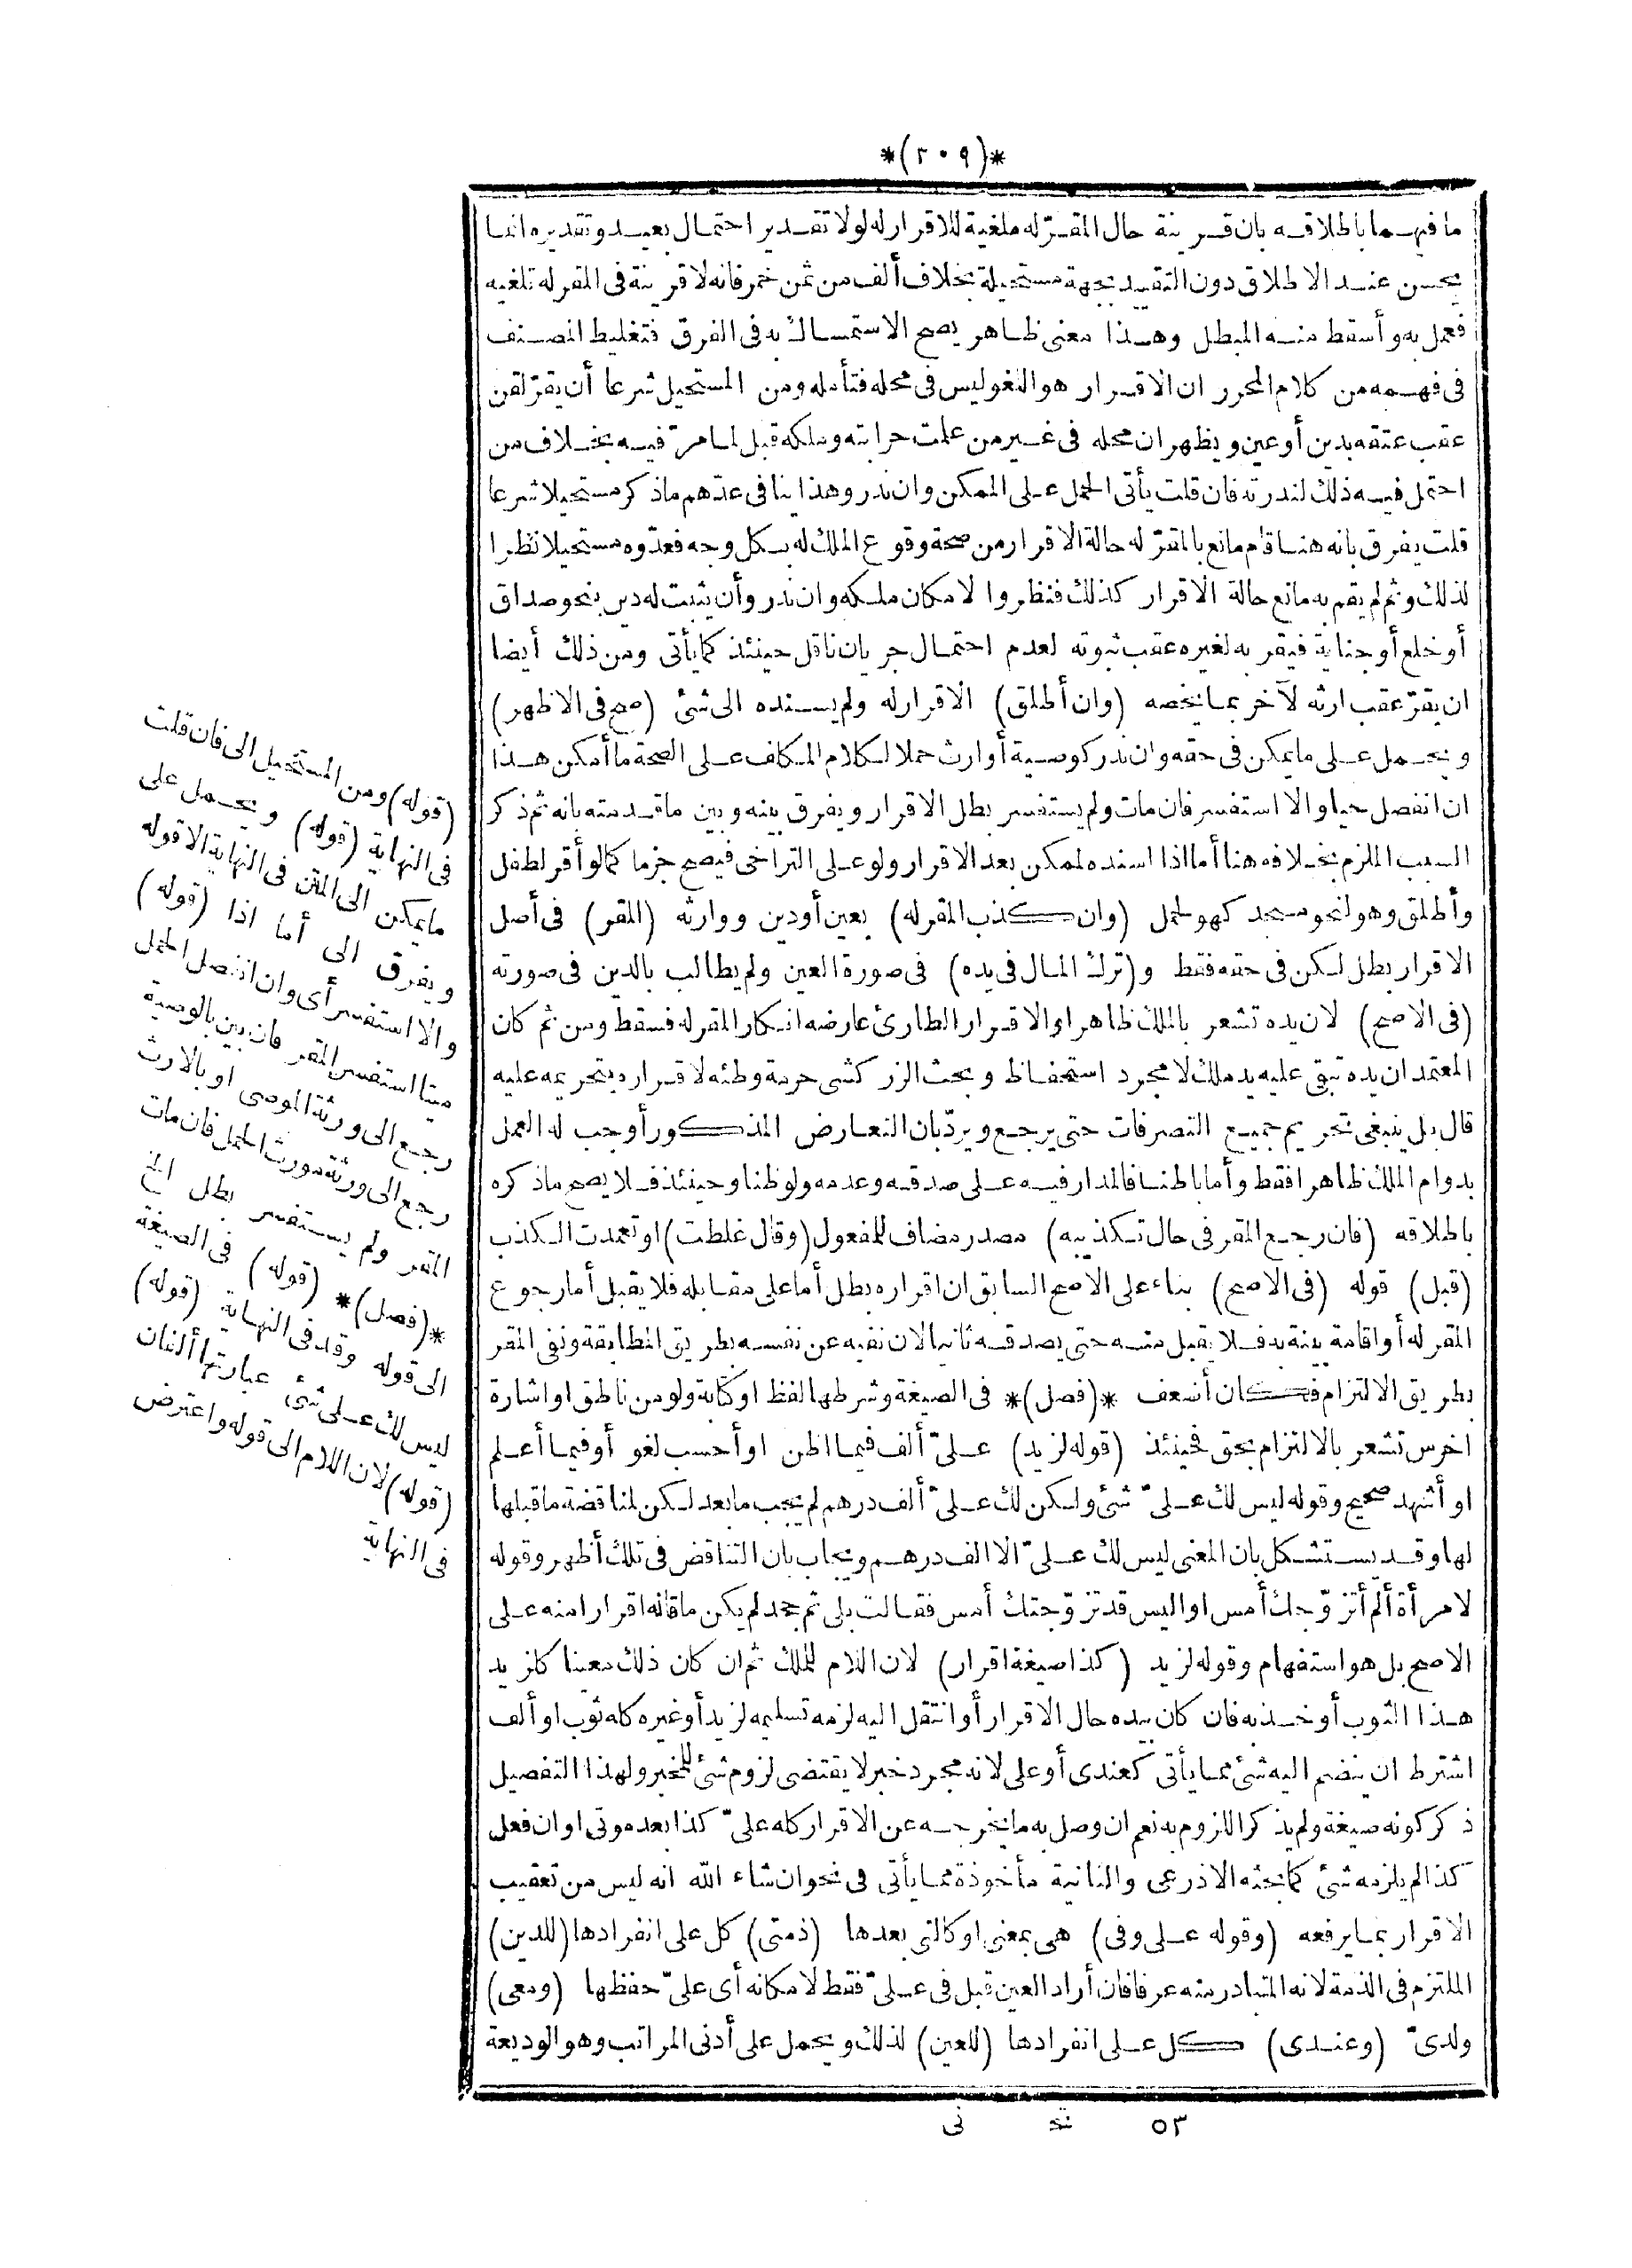 *(٢٠٩)*
ما فيهما باطلاقه بان قرينة حال المقرّ له ملغية للاقرار له لولا تقدير احتمال بعيد وتقديره انما
يحسن عند الاطلاق دون التقييد بجهة مستحيلة بخلاف ألف من ثمن خمر فانه لا قرينة فى المقر له تلغيه
فعمل به وأسقط منه المبطل وهذا معنى ظاهر يصح الاستمساك به فى الفرق فتغليط المصنف
فى فهمه من كلام المحرر ان الاقرار هو اللغو ليس فى محله فتأمله ومن المستحيل شرعا أن يقرّ لقن
عقب عتقه بدين أو عين ويظهر ان محله فى غير من علمت حرابته وملكه قبل لما مرّ فيه بخلاف من
احتمل فيه ذلك لندرته فان قلت يأتى الحمل على الممكن وان ندر وهذا ينافى عدّهم ما ذكر مستحيلا شرعا
قلت يفرق بانه هنا قام مانع بالمقرّ له حالة الاقرار من صحة وقوع الملك له بكل وجه فعدّوه مستحيلا نظرا
لذلك وثم لم يقم به مانع حالة الاقرار كذلك فنظروا لامكان ملكه وان ندر وأن يثبت له دين بنحو صداق
أو خلع أو جناية فيقر به لغيره عقب ثبوته لعدم احتمال جريان ناقل حينئذ كما يأتى ومن ذلك أيضا
ان يقرّ عقب ارثه لآخر بما يخصه (وان أطلق) الاقرار له ولم يسنده الى شئ (صح فى الاظهر)
ويحمل على ما يمكن فى حقه وان ندر كوصية أو ارث حملا لكلام المكلف على الصحة ما أمكن هذا
ان انفصل حيا والا استفسر فان مات ولم يستفسر بطل الاقرار ويفرق بينه وبين ما قدمته بانه ثم ذكر
السبب الملزم بخلافه هنا أما اذا اسنده لممكن بعد الاقرار ولو على التراخى فيصح جزما كما لو أقر لطفل
وأطلق وهو لنحو مسجد كهو لحمل (وان كذب المقر له) بعين أو دين ووارثه (المقر) فى أصل
الاقرار بطل لكن فى حقه فقط و(ترك المال فى يده) فى صورة العين ولم يطالب بالدين فى صورته
(فى الاصح) لان يده تشعر بالملك ظاهرا والاقرار الطارئ عارضه انكار المقر له فسقط ومن ثم كان
المعتمد ان يده تبقى عليه يد ملك لا مجرد استحفاظ وبحث الزركشى حرمة وطئه لاقراره بتحريمه عليه
قال بل ينبغى تحريم جميع التصرفات حتى يرجع ويردّ بان التعارض المذكور أوجب له العمل
بدوام الملك ظاهرا فقط وأما باطنا فالمدار فيه على صدقه وعدمه ولو ظنا وحينئذ فلا يصح ما ذكره
باطلاقه (فان رجع المقر فى حال تكذيبه) مصدر مضاف للمفعول (وقال غلطت) او تعمدت الكذب
(قبل) قوله (فى الاصح) بناء على الاصح السابق ان اقراره بطل أما على مقابله فلا يقبل أما رجوع
المقر له أو اقامة بينة به فلا يقبل منه حتى يصدقه ثانيا لان نفيه عن نفسه بطريق المطابقة ونفى المقر
بطريق الالتزام فكان أضعف *(فصل)* فى الصيغة وشرطها لفظ او كتابة ولو من ناطق او اشارة
اخرس تشعر بالالتزام بحق فحينئذ (قوله لزيد) علىّ ألف فيما اظن او أحسب لغو أو فيما أعلم
او أشهد صحيح وقوله ليس لك علىّ شئ ولكن لك علىّ ألف درهم لم يجب ما بعد لكن لمناقضة ما قبلها
لها وقد يستشكل بان المعنى ليس لك علىّ الا الف درهم ويجاب بان التناقض فى تلك أظهر وقوله
لامرأة ألم أتزوّجك أمس او اليس قد تزوّجتك أمس فقالت بلى ثم جحد لم يكن ما قاله اقرارا منه على
الاصح بل هو استفهام وقوله لزيد (كذا صيغة اقرار) لان اللام للملك ثم ان كان ذلك معينا كلزيد
هذا الثوب أو خذ به فان كان بيده حال الاقرار أو انتقل اليه لزمه تسليمه لزيد أو غيره كله ثوب او ألف
اشترط ان ينضم اليه شئ مما يأتى كعندى أو على لانه مجرد خبر لا يقتضى لزوم شئ للمخبر ولهذا التفصيل
ذكر كونه صيغة ولم يذكر اللزوم به نعم ان وصل به ما يخرجه عن الاقرار كله علىّ كذا بعد موتى او ان فعل
كذا لم يلزمه شئ كما بحثه الاذرعى والثانية مأخوذة مما يأتى فى نحو ان شاء الله انه ليس من تعقيب
الاقرار بما يرفعه (وقوله على وفى) هى بمعنى او كالتى بعدها (ذمتى) كل على انفرادها (للدين)
الملتزم فى الذمة لانه المتبادر منه عرفا فان أراد العين قبل فى علىّ فقط لامكانه أى علىّ حفظها (ومعى)
ولدىّ (وعندى) كل على انفرادها (للعين) لذلك ويحمل على أدنى المراتب وهو الوديعة
٥٣ تحـ نى
(قوله) ومن المستحيل الى فان قلت
فى النهاية (قوله) ويحمل على
ما يمكن الى المتن فى النهاية الا قوله
ويفرق الى أما اذا (قوله)
والا استفسر أى وان انفصل الحمل
ميتا استفسر المقر فان بين بالوصية
رجع الى ورثة الموصى او بالارث
رجع الى ورثة مورث الحمل فان مات
المقر ولم يستفسر بطل الخ
*(فصل)* (قوله) فى الصيغة
الى قوله وقد فى النهاية (قوله)
ليس لك على شئ عبارتها ألفان
(قوله) لان اللام الى قوله واعترض
فى النهاية